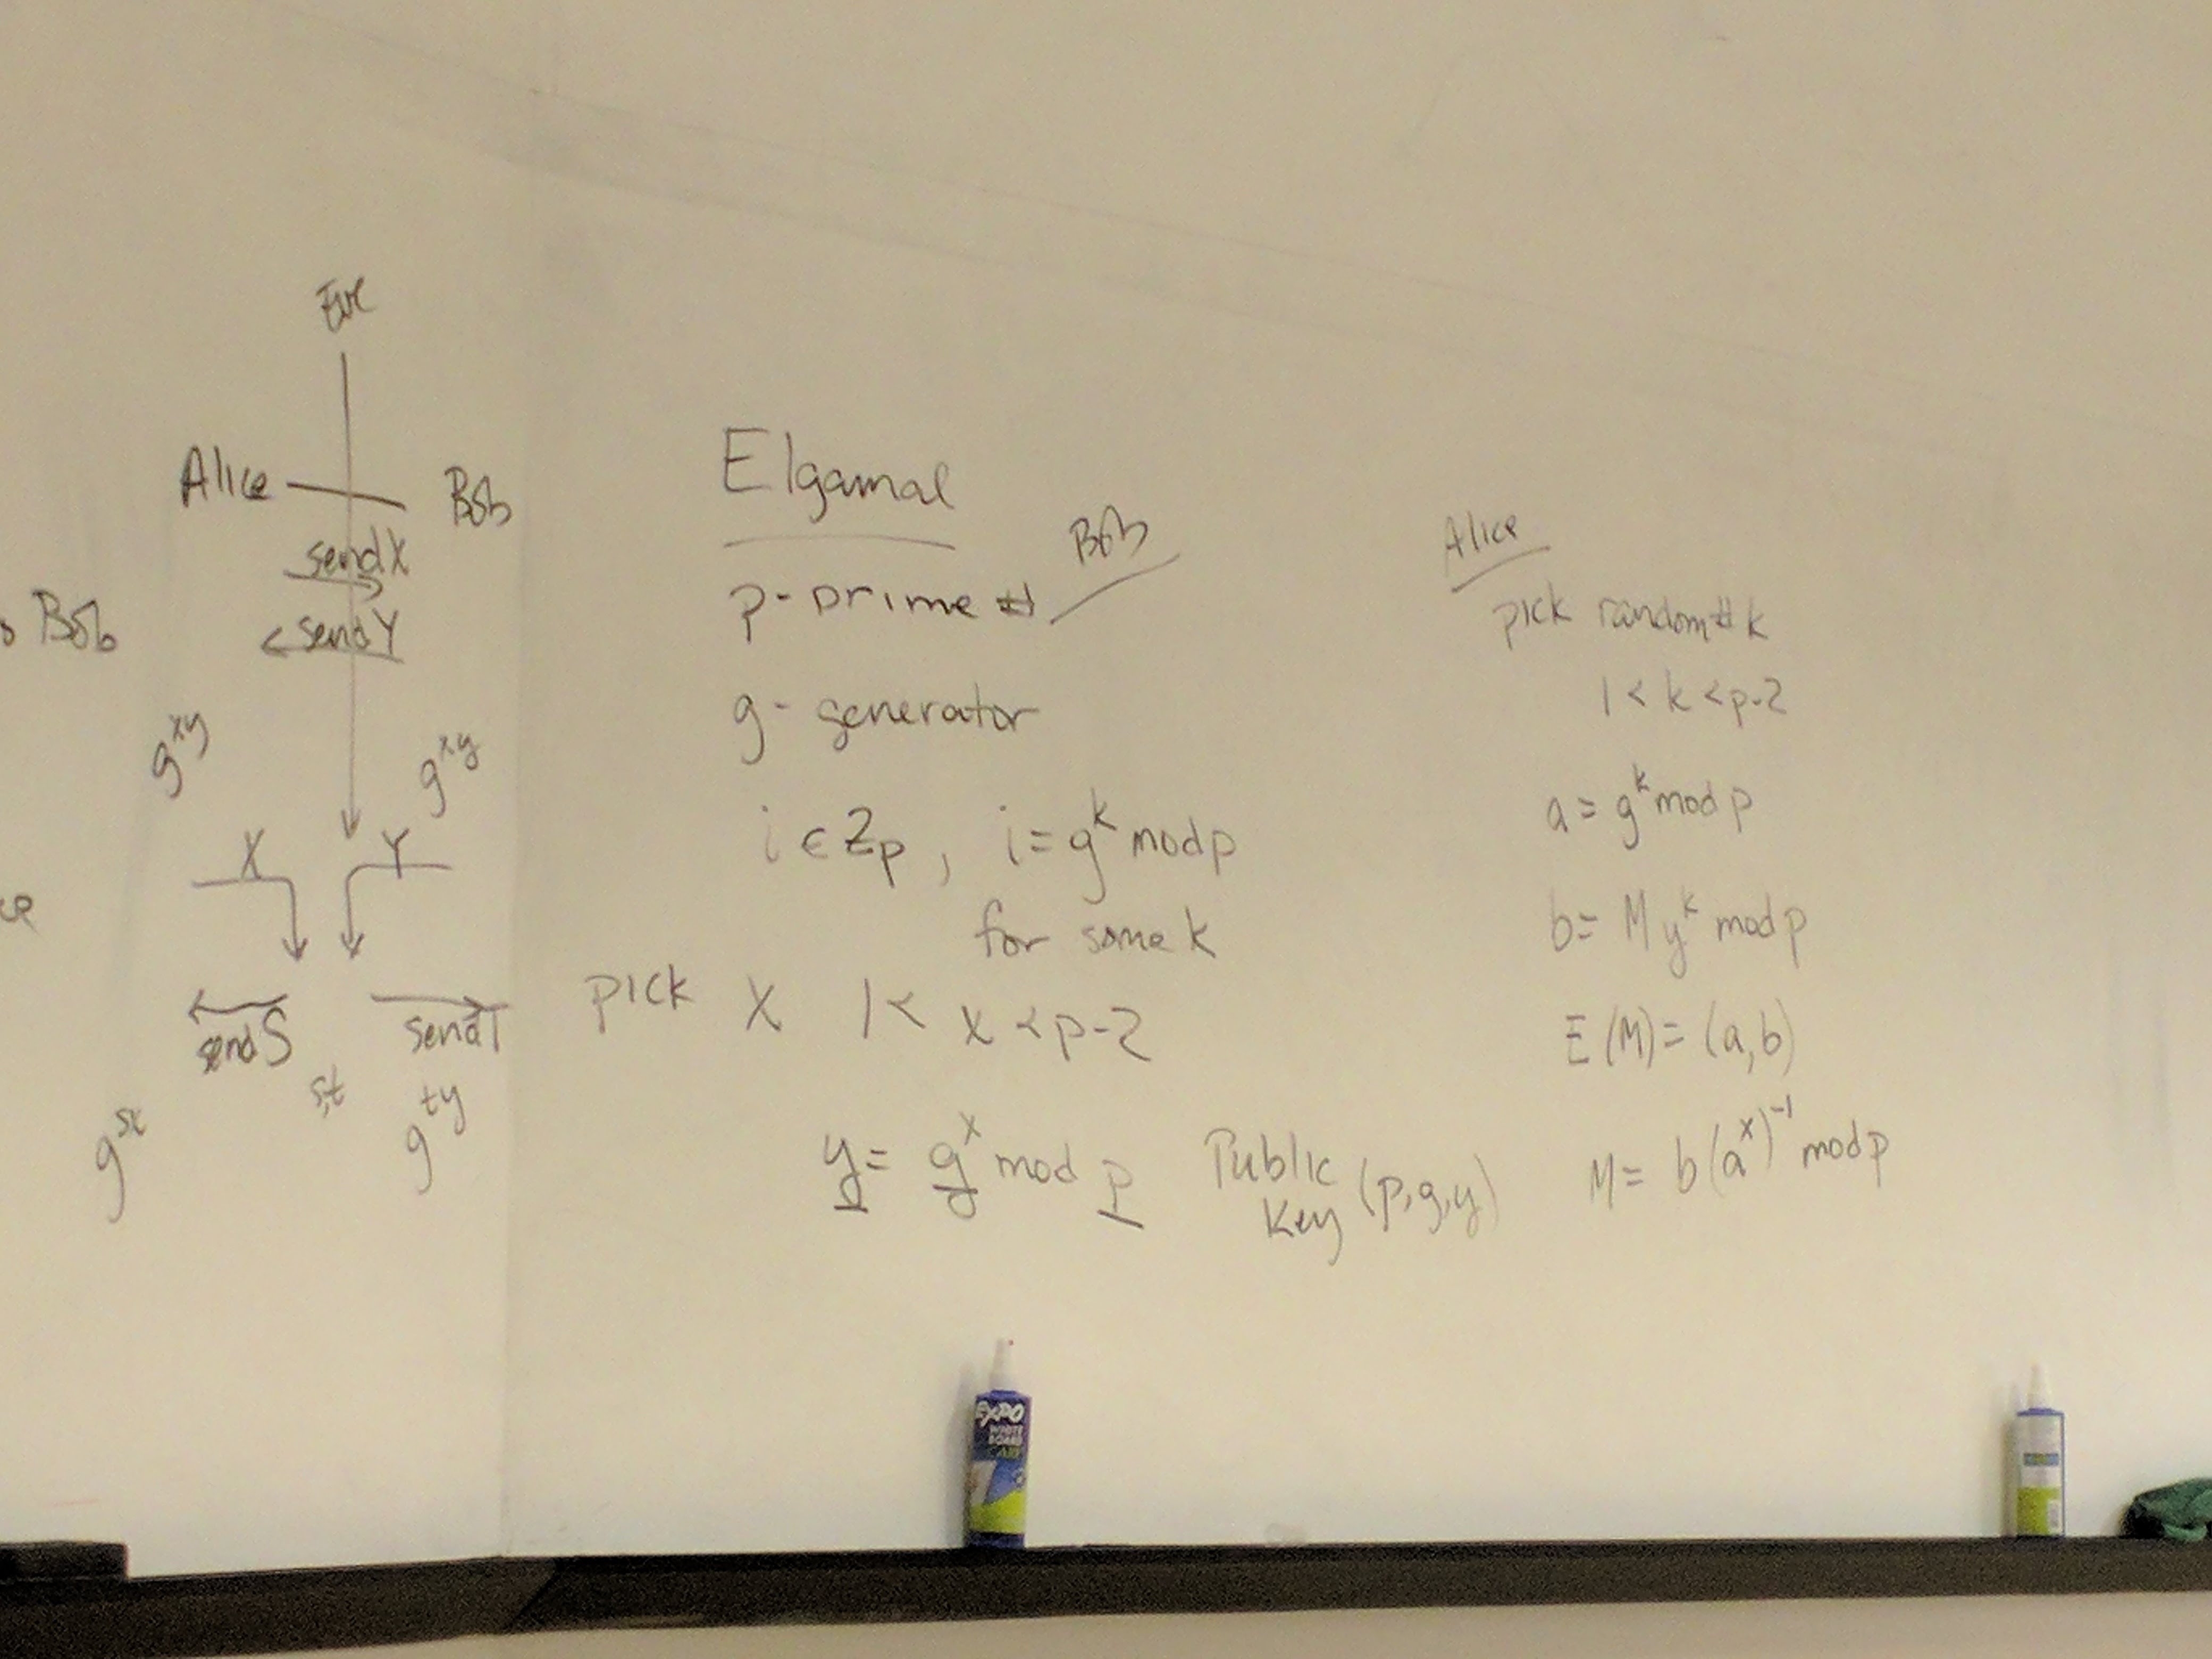 Eve
Alice
Bob
send X
send Y
Bob
g^xy
g^xy
X
Y
send S
send T
s,t
g^sx
g^ty
Elgamal
Bob
p - prime #
g - generator
i ∈ Zp, i = g^k mod p
for some k
pick x 1 < x < p-2
y = g^x mod p
Public
Key (p,g,y)
Alice
pick random # k
1 < k < p-2
a = g^k mod p
b = M y^k mod p
E(M) = (a,b)
M = b(a^x)^-1 mod p
EXPO
WHITE
BOARD
CARE